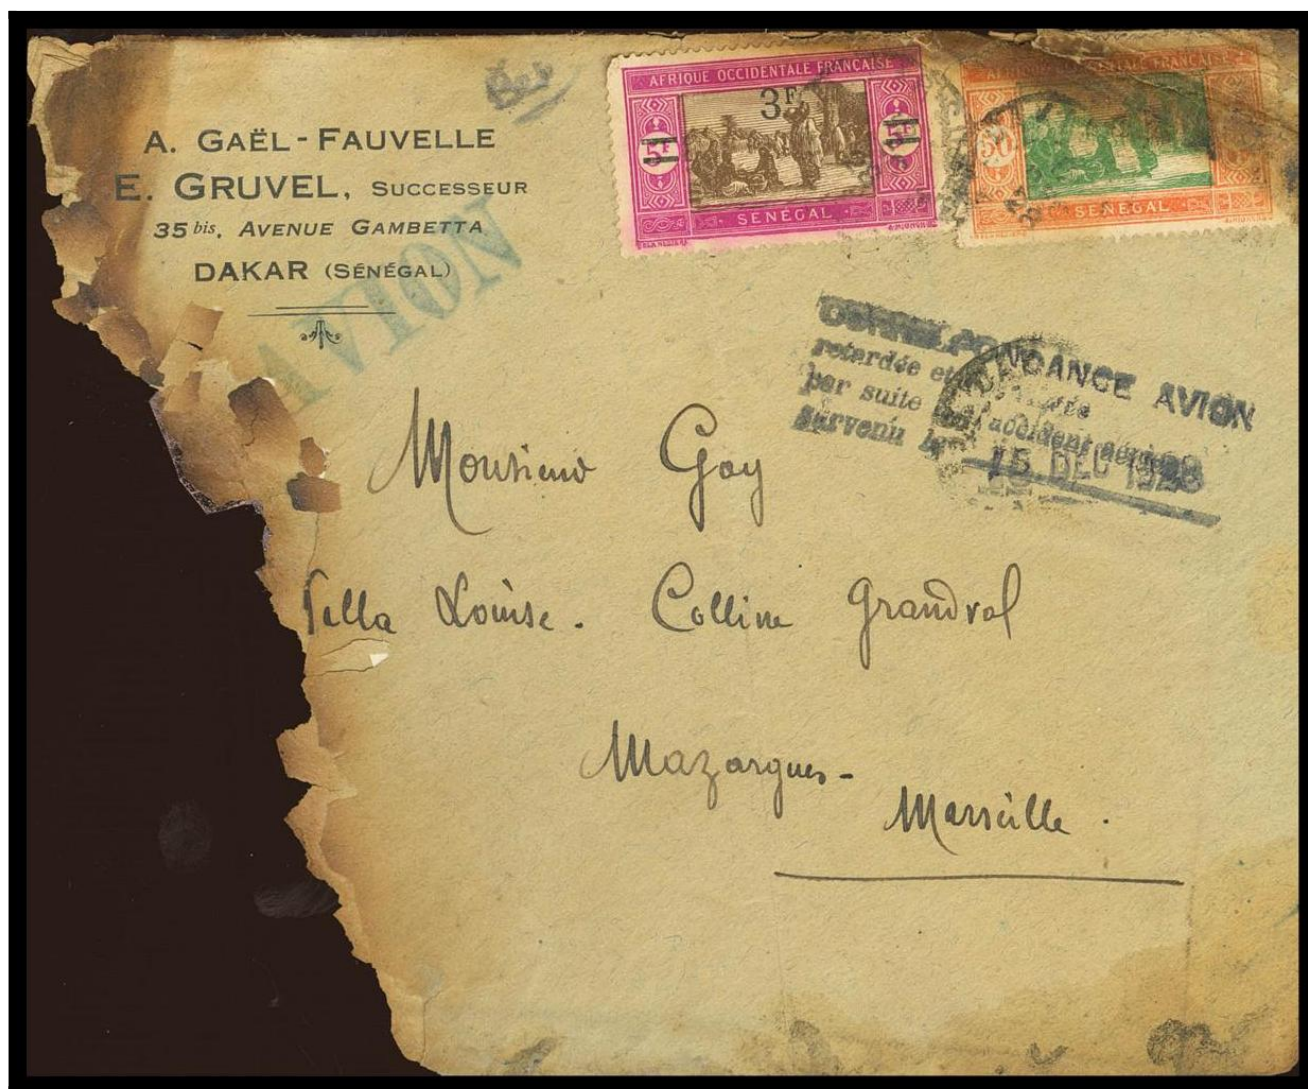 A. GAËL-FAUVELLE
E. GRUVEL, SUCCESSEUR
35 bis, AVENUE GAMBETTA
DAKAR (SÉNÉGAL)
AVION
AFRIQUE OCCIDENTALE FRANÇAISE
3F
5F 5F
SÉNÉGAL
AFRIQUE OCCIDENTALE FRANÇAISE
50
SÉNÉGAL
CORRESPONDANCE AVION
retardée et
par suite accident aérien
survenu le 15 DEC 1928
Monsieur Goy
Villa Louise. Colline Grandval
Mazargues-
Marseille.